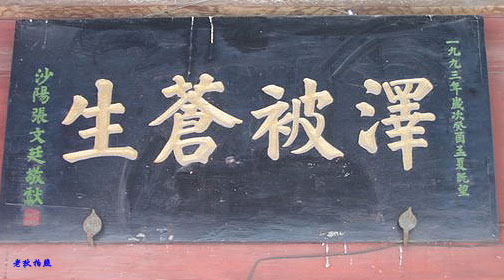 一九九三年歲次癸酉孟夏既望
澤被蒼生
沙陽張文廷敬獻
老狄拍